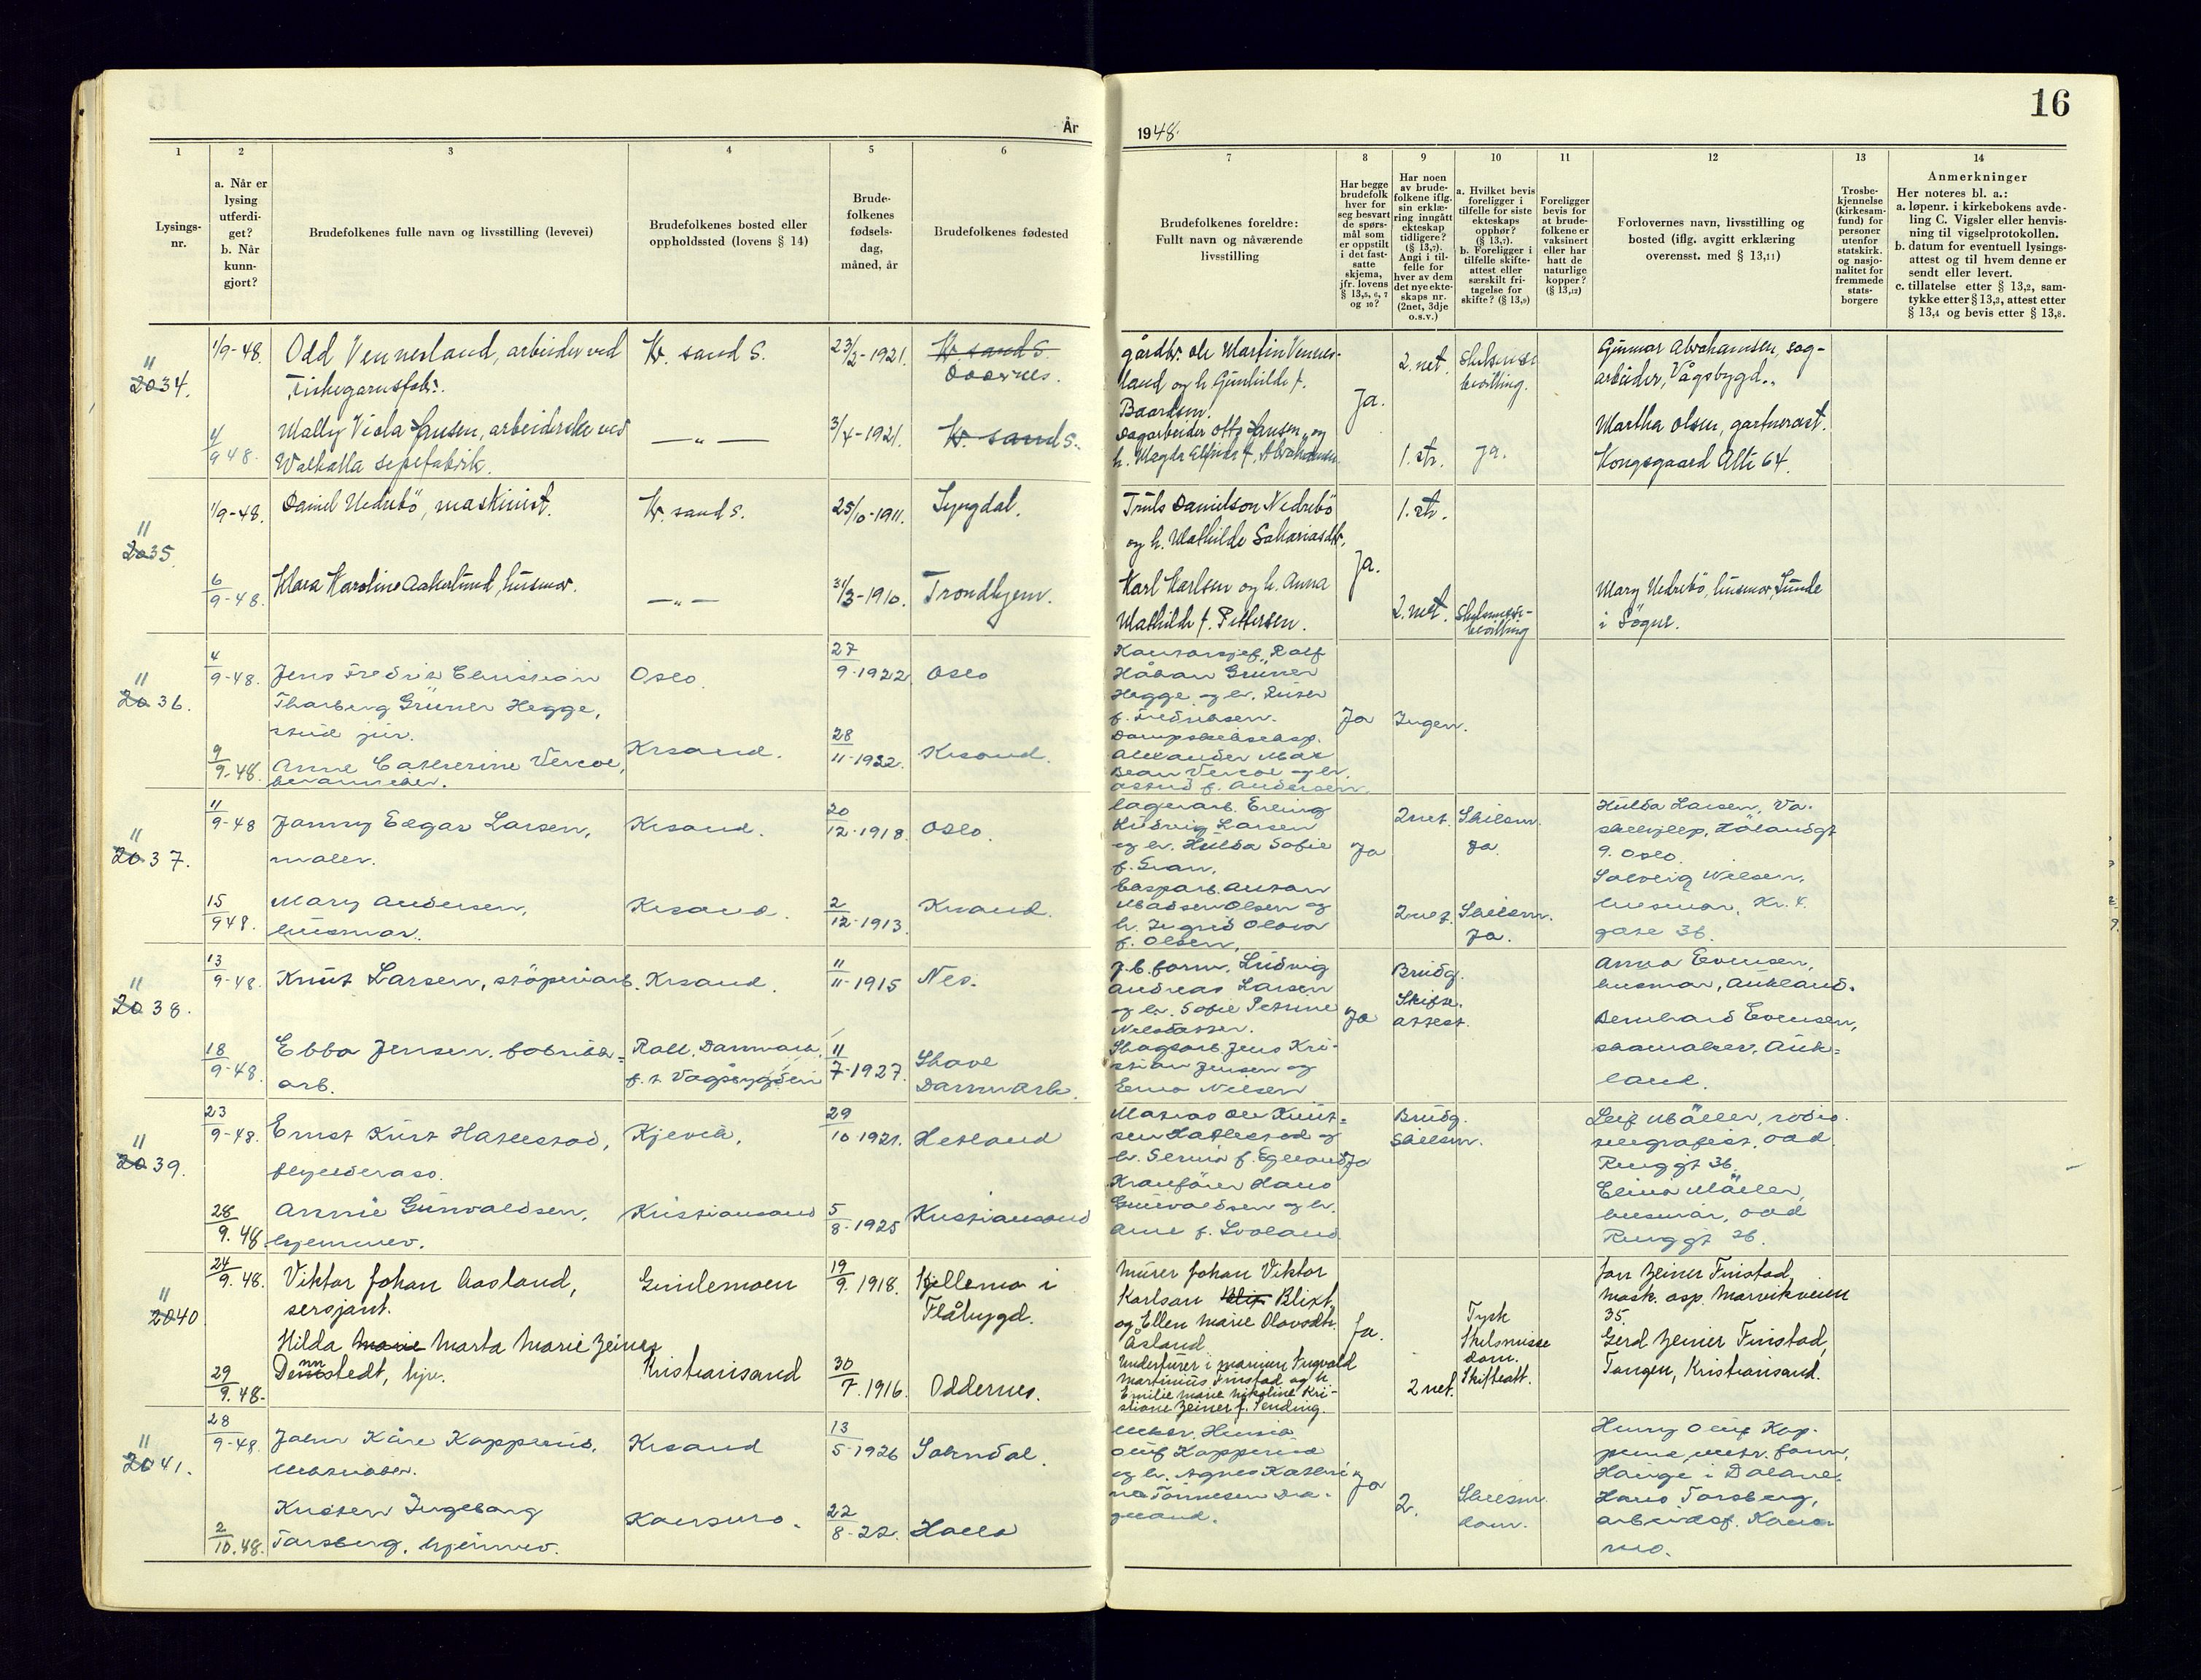 16
År
1948.
1
2
3
4
5
6
7
8
9
10
11
12
13
14
Lysings-
nr.
a. Når er
lysing
utferdi-
get?
b. Når
kunn-
gjort?
Brudefolkenes fulle navn og livsstilling (levevei)
Brudefolkenes bosted eller
oppholdssted (lovens § 14)
Brude-
folkenes
fødsels-
dag,
måned, år
Brudefolkenes fødested
Brudefolkenes foreldre:
Fullt navn og nåværende
livsstilling
Har begge
brudefolk
hver for
seg besvart
de spørs-
mål som
er oppstilt
i det fast-
satte
skjema,
jfr. lovens
§ 13,5, 6, 7
og 10?
Har noen
av brude-
folkene iflg.
sin erklæ-
ring inngått
ekteskap
tidligere?
(§ 13,7).
Angi i til-
felle for
hver av dem
det nye ekte-
skaps nr.
(2net, 3dje
o.s.v.)
a. Hvilket bevis
foreligger i
tilfelle for siste
ekteskaps
opphør?
(§ 13,7).
b. Foreligger i
tilfelle skifte-
attest eller
særskilt fri-
tagelse for
skifte? (§ 13,9)
Foreligger
bevis for
at brude-
folkene er
vaksinert
eller har
hatt de
naturlige
kopper?
(§ 13,12)
Forlovernes navn, livsstilling og
bosted (iflg. avgitt erklæring
overensst. med § 13,11)
Trosbe-
kjennelse
(kirkesam-
fund) for
personer
utenfor
statskirk.
og nasjo-
nalitet for
fremmede
stats-
borgere
Anmerkninger
Her noteres bl. a.:
a. løpenr. i kirkebokens avde-
ling C. Vigsler eller henvis-
ning til vigselprotokollen.
b. datum for eventuell lysings-
attest og til hvem denne er
sendt eller levert.
c. tillatelse etter § 13,2, sam-
tykke etter § 13,3, attest etter
§ 13,4 og bevis etter § 13,8.
11
2034.
1/9-48.
Odd Vennesland, arbeider ved
Fiskegarnsfabr.
Kr. sand S.
23/2-1921.
Kr sand S.
Oddernes.
gårdbr. Ole Martin Vennes-
land og h. Gunhilde f.
Baardsen.
Ja.
2. net.
Skilsmisse
bevilling.
Gunnar Abrahamsen, sag-
arbeider, Vågsbygd.
4/9 48.
Mally Viola Hansen, arbeiderske ved
Walhalla sepefabrik.
— " —
3/4-1921.
Kr. sand S.
Dagarbeider Otto Hansen og
h. Magda Elfrida f. Abrahamsen.
1. str.
Ja.
Martha Olsen, gartnerast.
Kongsgaard Alle 64.
11
2035.
1/9-48.
Daniel Nedrebö, maskinist.
Kr. sand S.
25/10-1911.
Lyngdal.
Truls Danielson Nedrebö
og h. Mathilde Sakariasdtr.
Ja.
1. str.
6/9-48.
Klara Karoline Aakerlund, husmor.
— " —
31/3-1910.
Trondhjem.
Karl Karlsen og h. Anna
Mathilde f. Pettersen.
2. net.
Skilsmisse-
bevilling
Mary Nedrebö, husmor, Lunde
i Sögne.
11
2036.
4/9-48.
Jens Fredrik Christian
Tharberg Grüner Hegge,
stud jur.
Oslo
27/9-1922
Oslo
Kontorsjef Rolf
Håkan Grüner
Hegge og h.
f. Fredriksen.
Ja
Ingen.
9/9-48.
Anne Cathrine Vercoe,
Krsand.
28/11-1922.
Krsand.
Alexander Max
Dean Vercoe og h.
Astrid f. Andersen.
11
2037.
11/9-48
Jonny Edgar Larsen,
maler.
Krsand.
20/12-1918.
Oslo.
lagerarb. Erling
Ludvig Larsen
og h. Hulda Sofie
f. Gran.
Ja
2net.
Skilsm.
Ja.
Hulda Larsen, Va-
skehjelp, Hölandsgt
9. Oslo.
15/9 48.
Mary Andersen,
husmor.
Krsand.
2/12-1913.
Krsand.
Madsen Olsen og
h. Ingrid Olava
f. Olsen.
2net.
Skilsm.
Ja.
Solveig Nilsen,
husmor, Kr. 4.
gate 36
11
2038.
13/9-48.
Knut Larsen, stöperiarb.
Krsand.
11/11-1915
Nes.
J.b. form. Ludvig
Andreas Larsen
og h. Sofie Petrine
Nilsdatter.
Ja
Brudg.
Skifte.
attest.
Anna Evensen,
husmor, Aukland.
18/9-48.
Ebba Jensen, fabrikk=
arb.
Roll, Danmark,
f. t. Vågsbygden
11/7-1927.
Skave
Danmark.
Skogsarb. Jens Kri-
stian Jensen og
Erna Nilsen
Bernhard Evensen,
skomaker, Auk=
land.
11
2039.
23/9-48.
Ernst Kurt Hatlestad,
Kjevik,
29/10-1921.
Hetland
Matias Ole Knut=
sen Hatlestad og
h. Serina f. Egeland
Ja
Brudg.
Skilsm.
Leif Möller, radio-
telegrafist, Odd
Ruggt 36.
28/9.48.
Annie Gunvaldsen,
hjemmev.
Kristiansand
5/8-1925
Kristiansand
Kranförer Hans
Gunvaldsen og h.
Ane f. Svaland.
Elina Möller,
husmor, Odd
Ruggt 36.
11
2040
24/9.48.
Viktor Johan Aasland,
sersjant.
Gimlemoen
19/9.1918.
Kjellemo i
Flåbygd.
Murer Johan Viktor
Karlson Blix Blixt,
og Ellen Marie Olavsdtr.
Åsland
Ja.
Tysk
Skilsmisse
dom.
Skifteatt.
Jan Zeiner Finstad,
mask. asp. Marvikveien
35.
29/9.48.
Hilda Marie Marta Marie Zeiner
Dennstedt, hjv.
Kristiansand
30/7.1916.
Oddernes.
Underfurer i marinen Ingvald
Martinius Finstad og h.
Emilie Marie Nikoline Kri-
stiane Zeiner f. Sending.
2 net.
Gerd Zeiner Finstad,
Tangen, Kristiansand.
11
2041.
28/9-48.
John Kåre Kopperud,
Krsand
13/5-1926
Sokndal.
Olaf Kopperud
og h. Agnes Kathri-
ne Tönnesen Dra-
geland.
Ja
Henry Oluf Kop-
Hauge i Dalane.
2/10.48.
Kristen Ingeborg
Torsberg, hjemmev.
22/8-22.
2.
Skilsm.
dom.
Hans Torsberg,